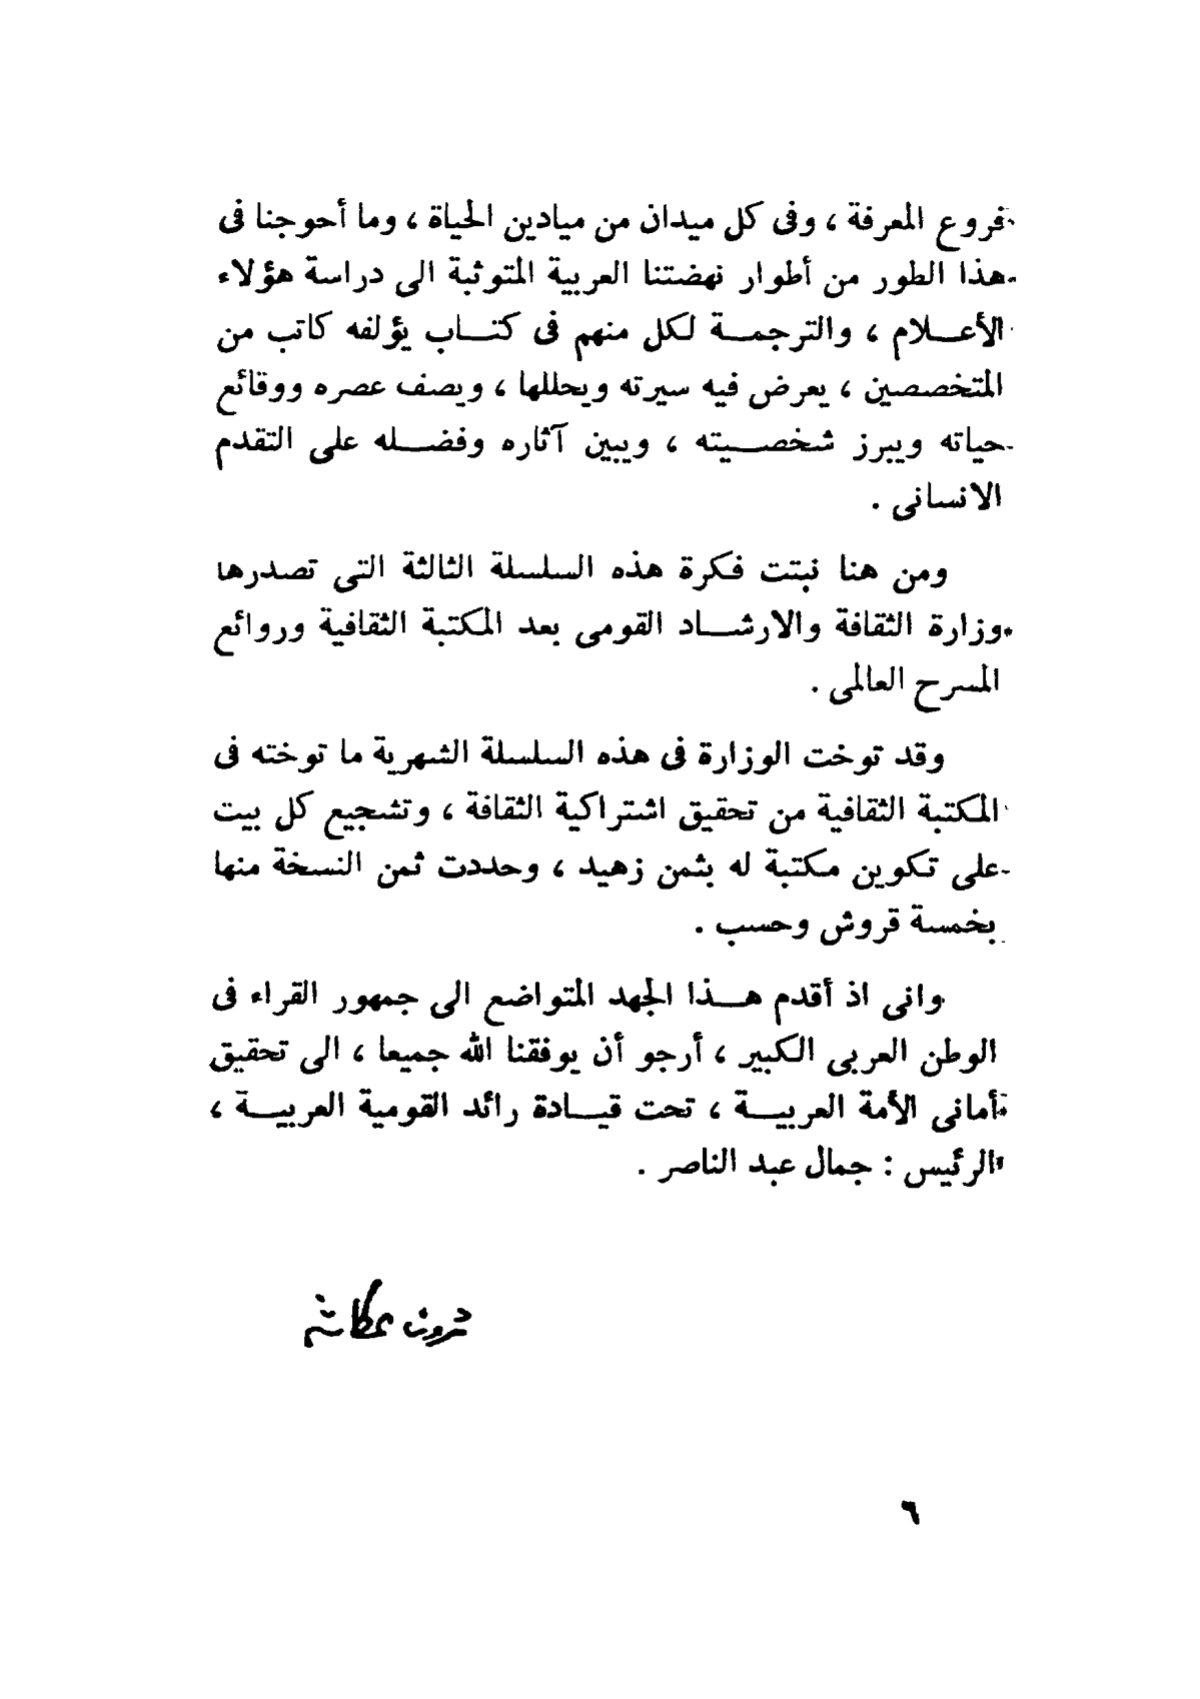 فروع المعرفة ، وفى كل ميدان من ميادين الحياة ، وما أحوجنا فى
هذا الطور من أطوار نهضتنا العربية المتوثبة الى دراسة هؤلاء
الأعــلام ، والترجمــة لكل منهم فى كتــاب يؤلفه كاتب من
المتخصصين ، يعرض فيه سيرته ويحللها ، ويصف عصره ووقائع
حياته ويبرز شخصــيته ، ويبين آثاره وفضــله على التقدم
الانسانى .
ومن هنا نبتت فكرة هذه السلسلة الثالثة التى تصدرها
وزارة الثقافة والارشــاد القومى بعد المكتبة الثقافية وروائع
المسرح العالمى .
وقد توخت الوزارة فى هذه السلسلة الشهرية ما توخته فى
المكتبة الثقافية من تحقيق اشتراكية الثقافة ، وتشجيع كل بيت
على تكوين مكتبة له بثمن زهيد ، وحددت ثمن النسخة منها
بخمسة قروش وحسب .
وانى اذ أقدم هــذا الجهد المتواضع الى جمهور القراء فى
الوطن العربى الكبير ، أرجو أن يوفقنا الله جميعا ، الى تحقيق
أمانى الأمة العربيــة ، تحت قيــادة رائد القومية العربيــة ،
الرئيس : جمال عبد الناصر .
ثروت عكاشة
٦